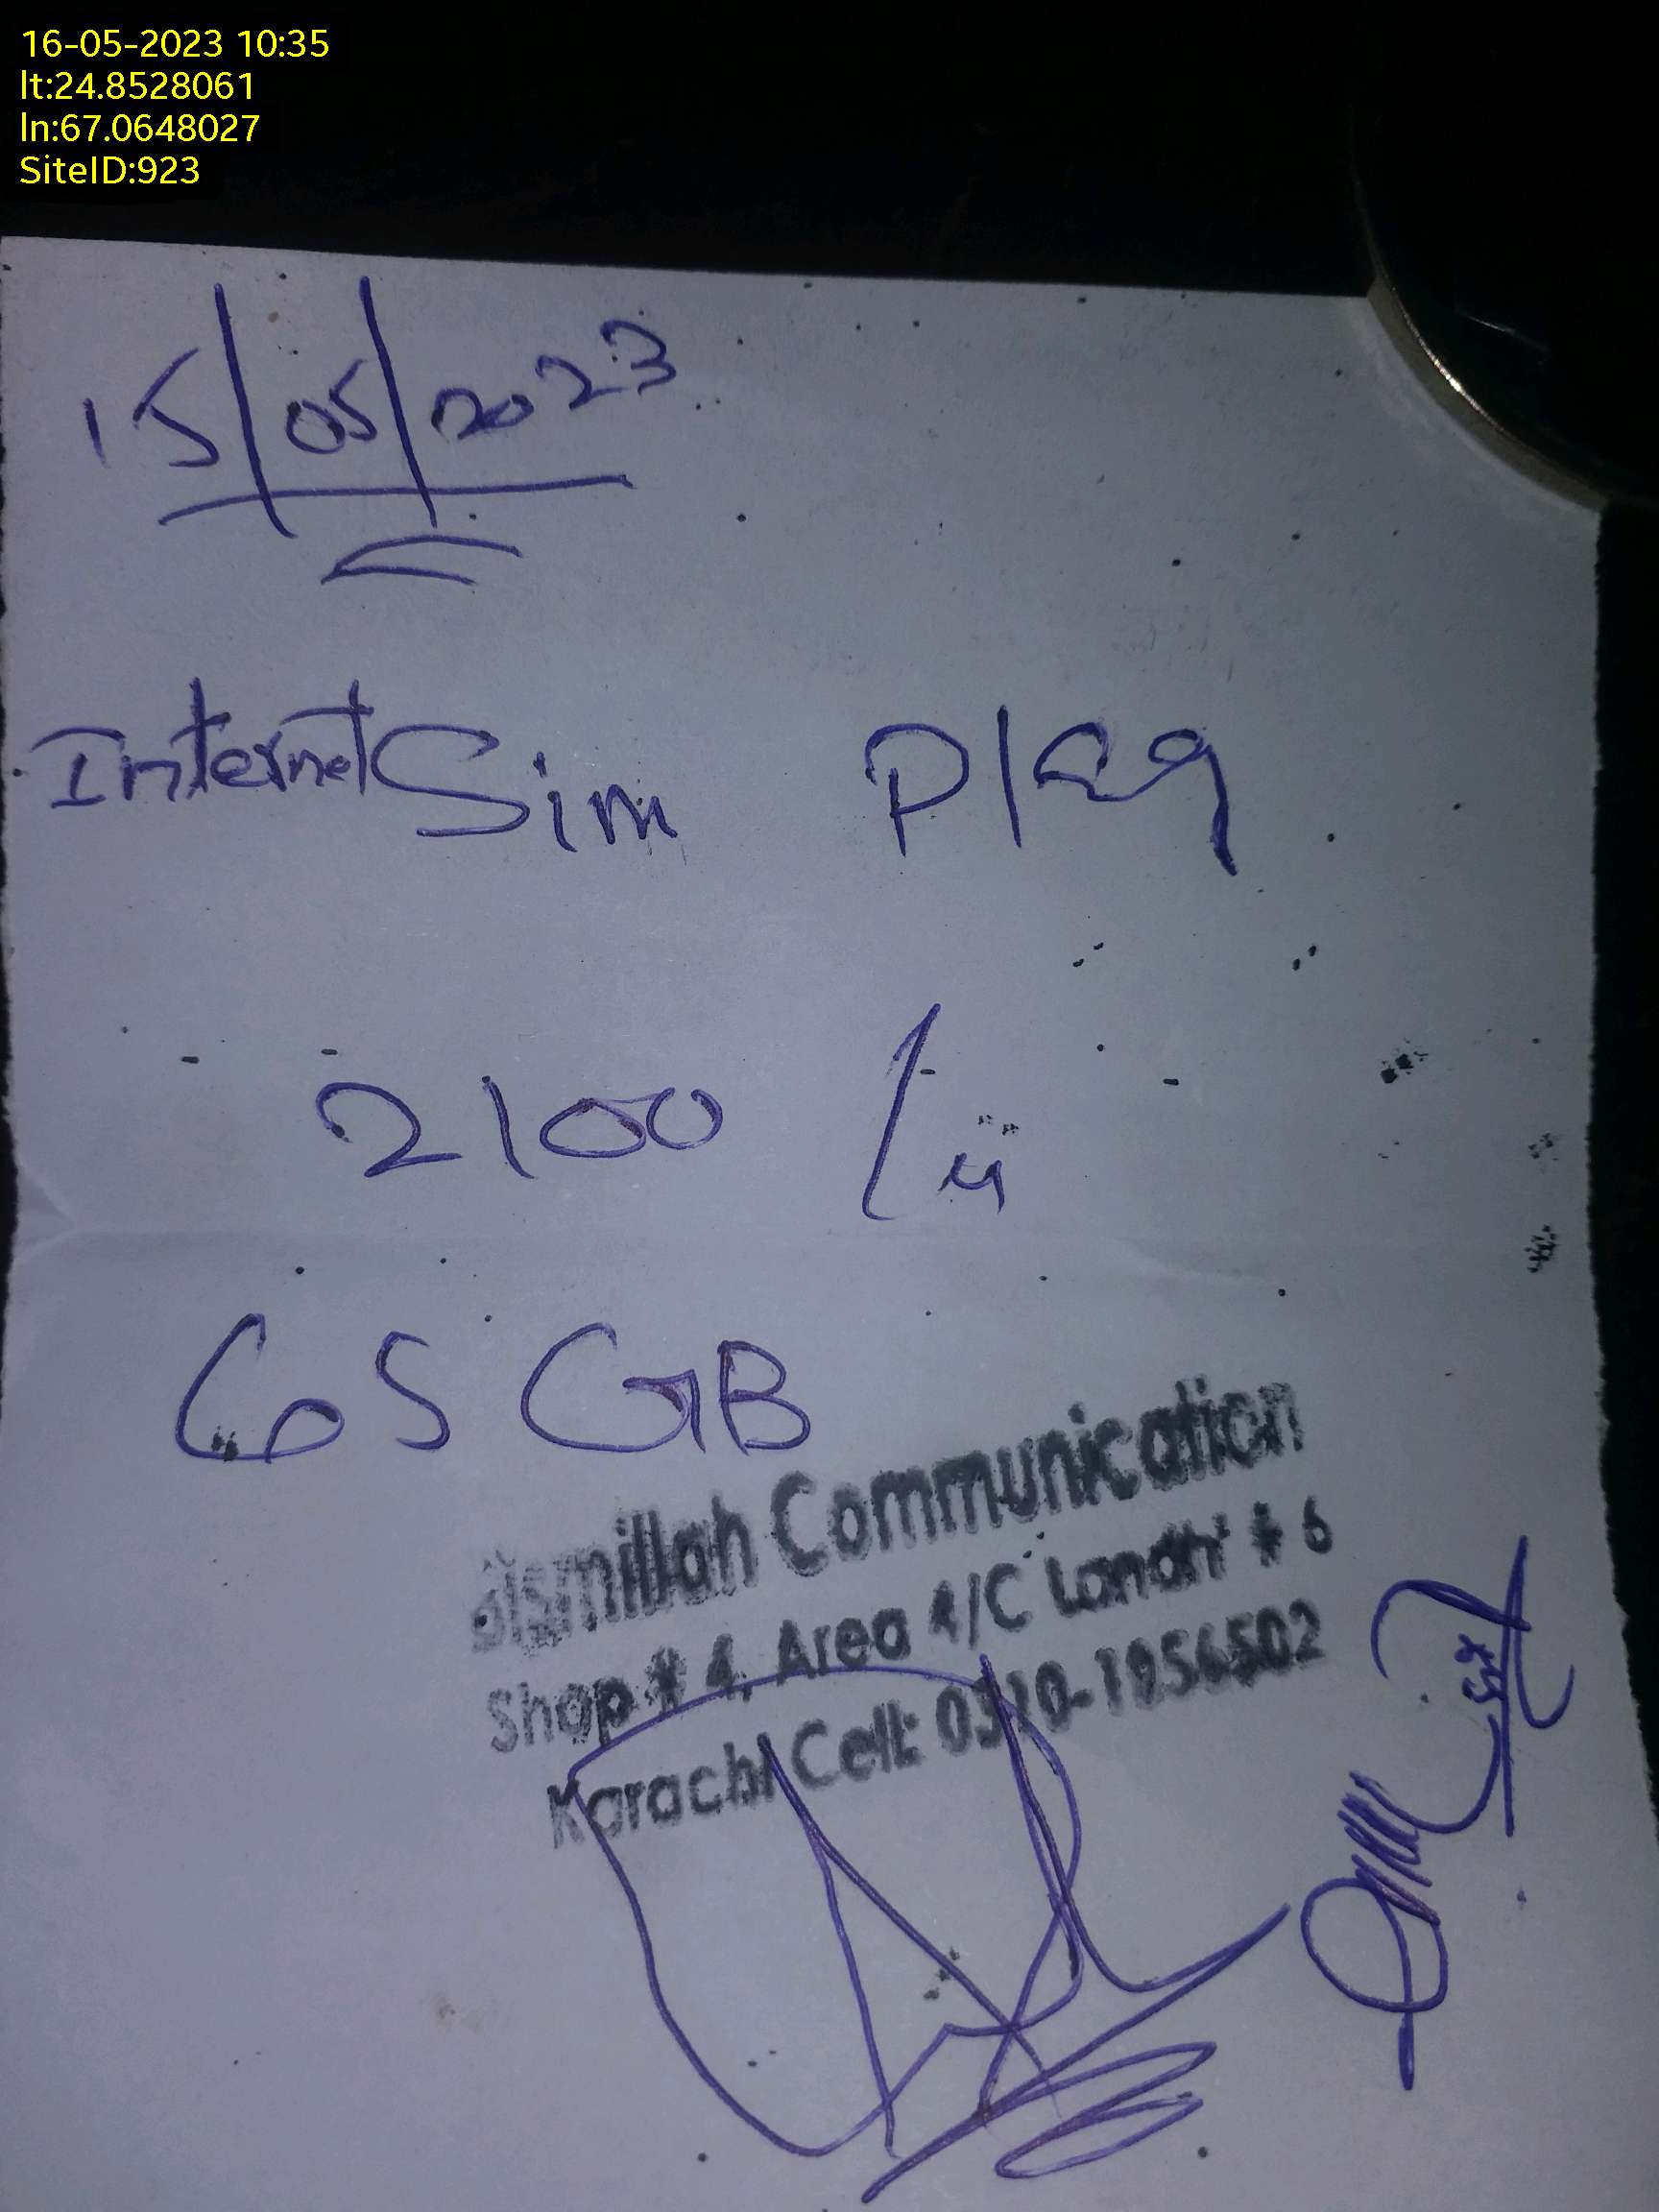 16-05-2023 10:35
lt:24.8528061
ln:67.0648027
SiteID:923
15/05/2023
Internet Sim
2100/
65 GB
Bismillah Communication
Shop # 4, Area 4/C Landhi # 6
Karachi Cell: 0310-1956502